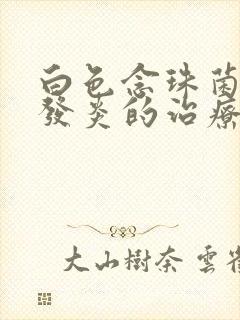 白色念珠菌
發炎的治療
大山樹奈 雲雀